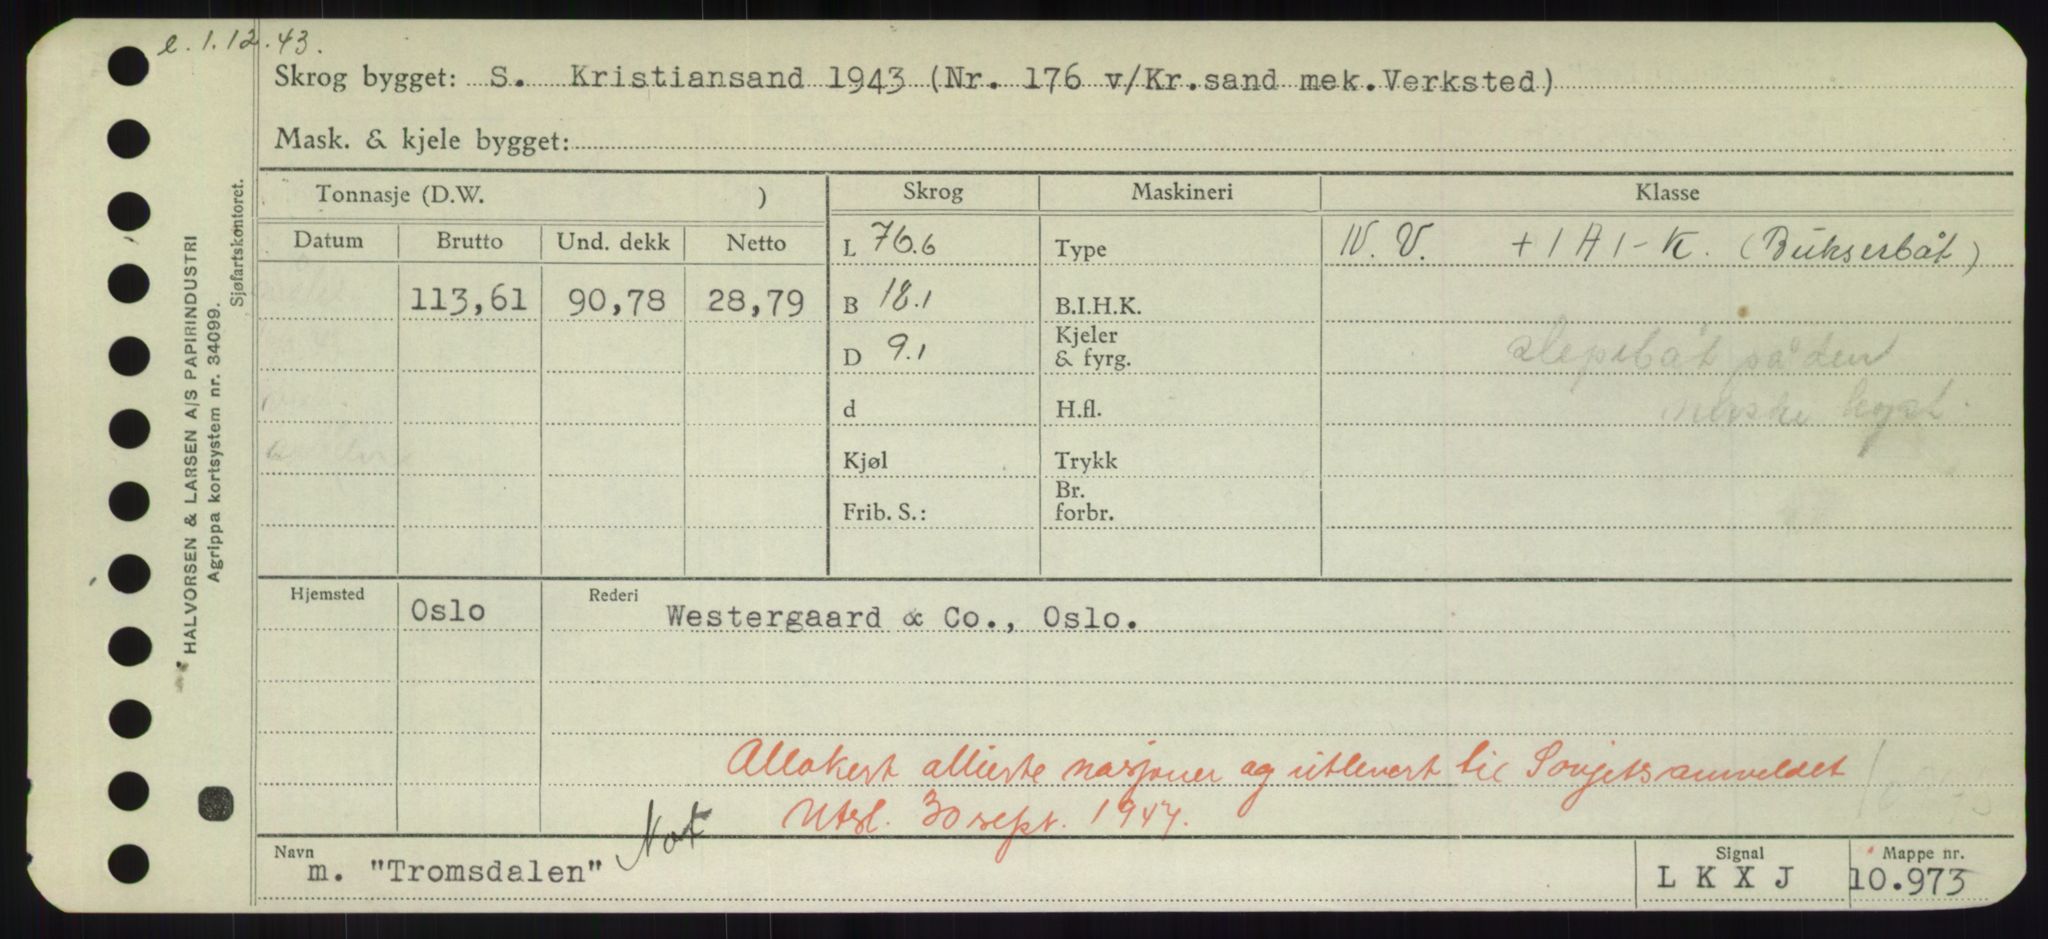 e. 1.12.43.
Skrog bygget: S. Kristiansand 1943 (Nr. 176 v/Kr.sand mek.Verksted)
Mask. & kjele bygget:
Tonnasje (D.W. ) Skrog Maskineri Klasse
Datum Brutto Und. dekk Netto L 76.6 Type N.V. + 1 A 1 - K. (Bukserbåt)
113,61 90,78 28,79 B 18.1 B.I.H.K.
D 9.1 Kjeler & fyrg. slepebåt på den
d H.fl. norske kyst.
Kjøl Trykk
Frib. S.: Br. forbr.
Hjemsted Oslo Rederi Westergaard & Co., Oslo.
Allokert allierte nasjoner og utlevert til Sovjetsamveldet
Utsl. 30 sept. 1947.
Not
Navn m. "Tromsdalen" Signal L K X J Mappe nr. 10.973
HALVORSEN & LARSEN A/S PAPIRINDUSTRI
Agrippa kortsystem nr. 34099.
Sjøfartskontoret.